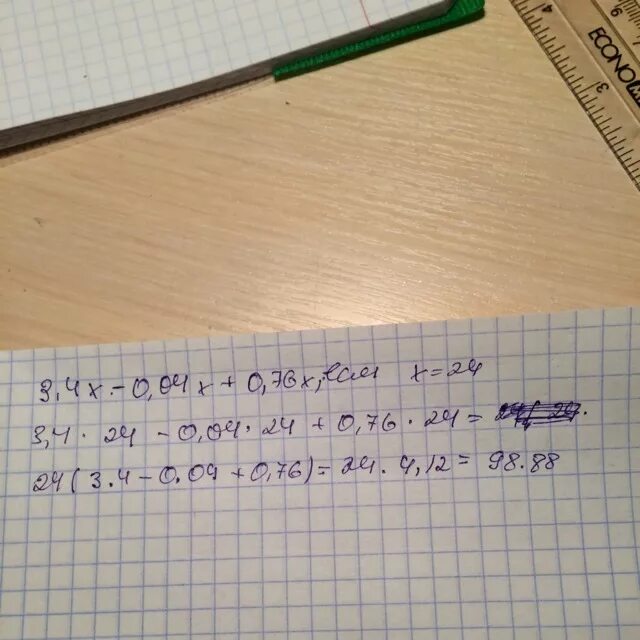 ECONO
4
3
3,4x - 0,04x + 0,76x, если x=24
3,4 · 24 - 0,04 · 24 + 0,76 · 24 =
24(3.4 - 0.04 + 0,76) = 24 · 4,12 = 98.88